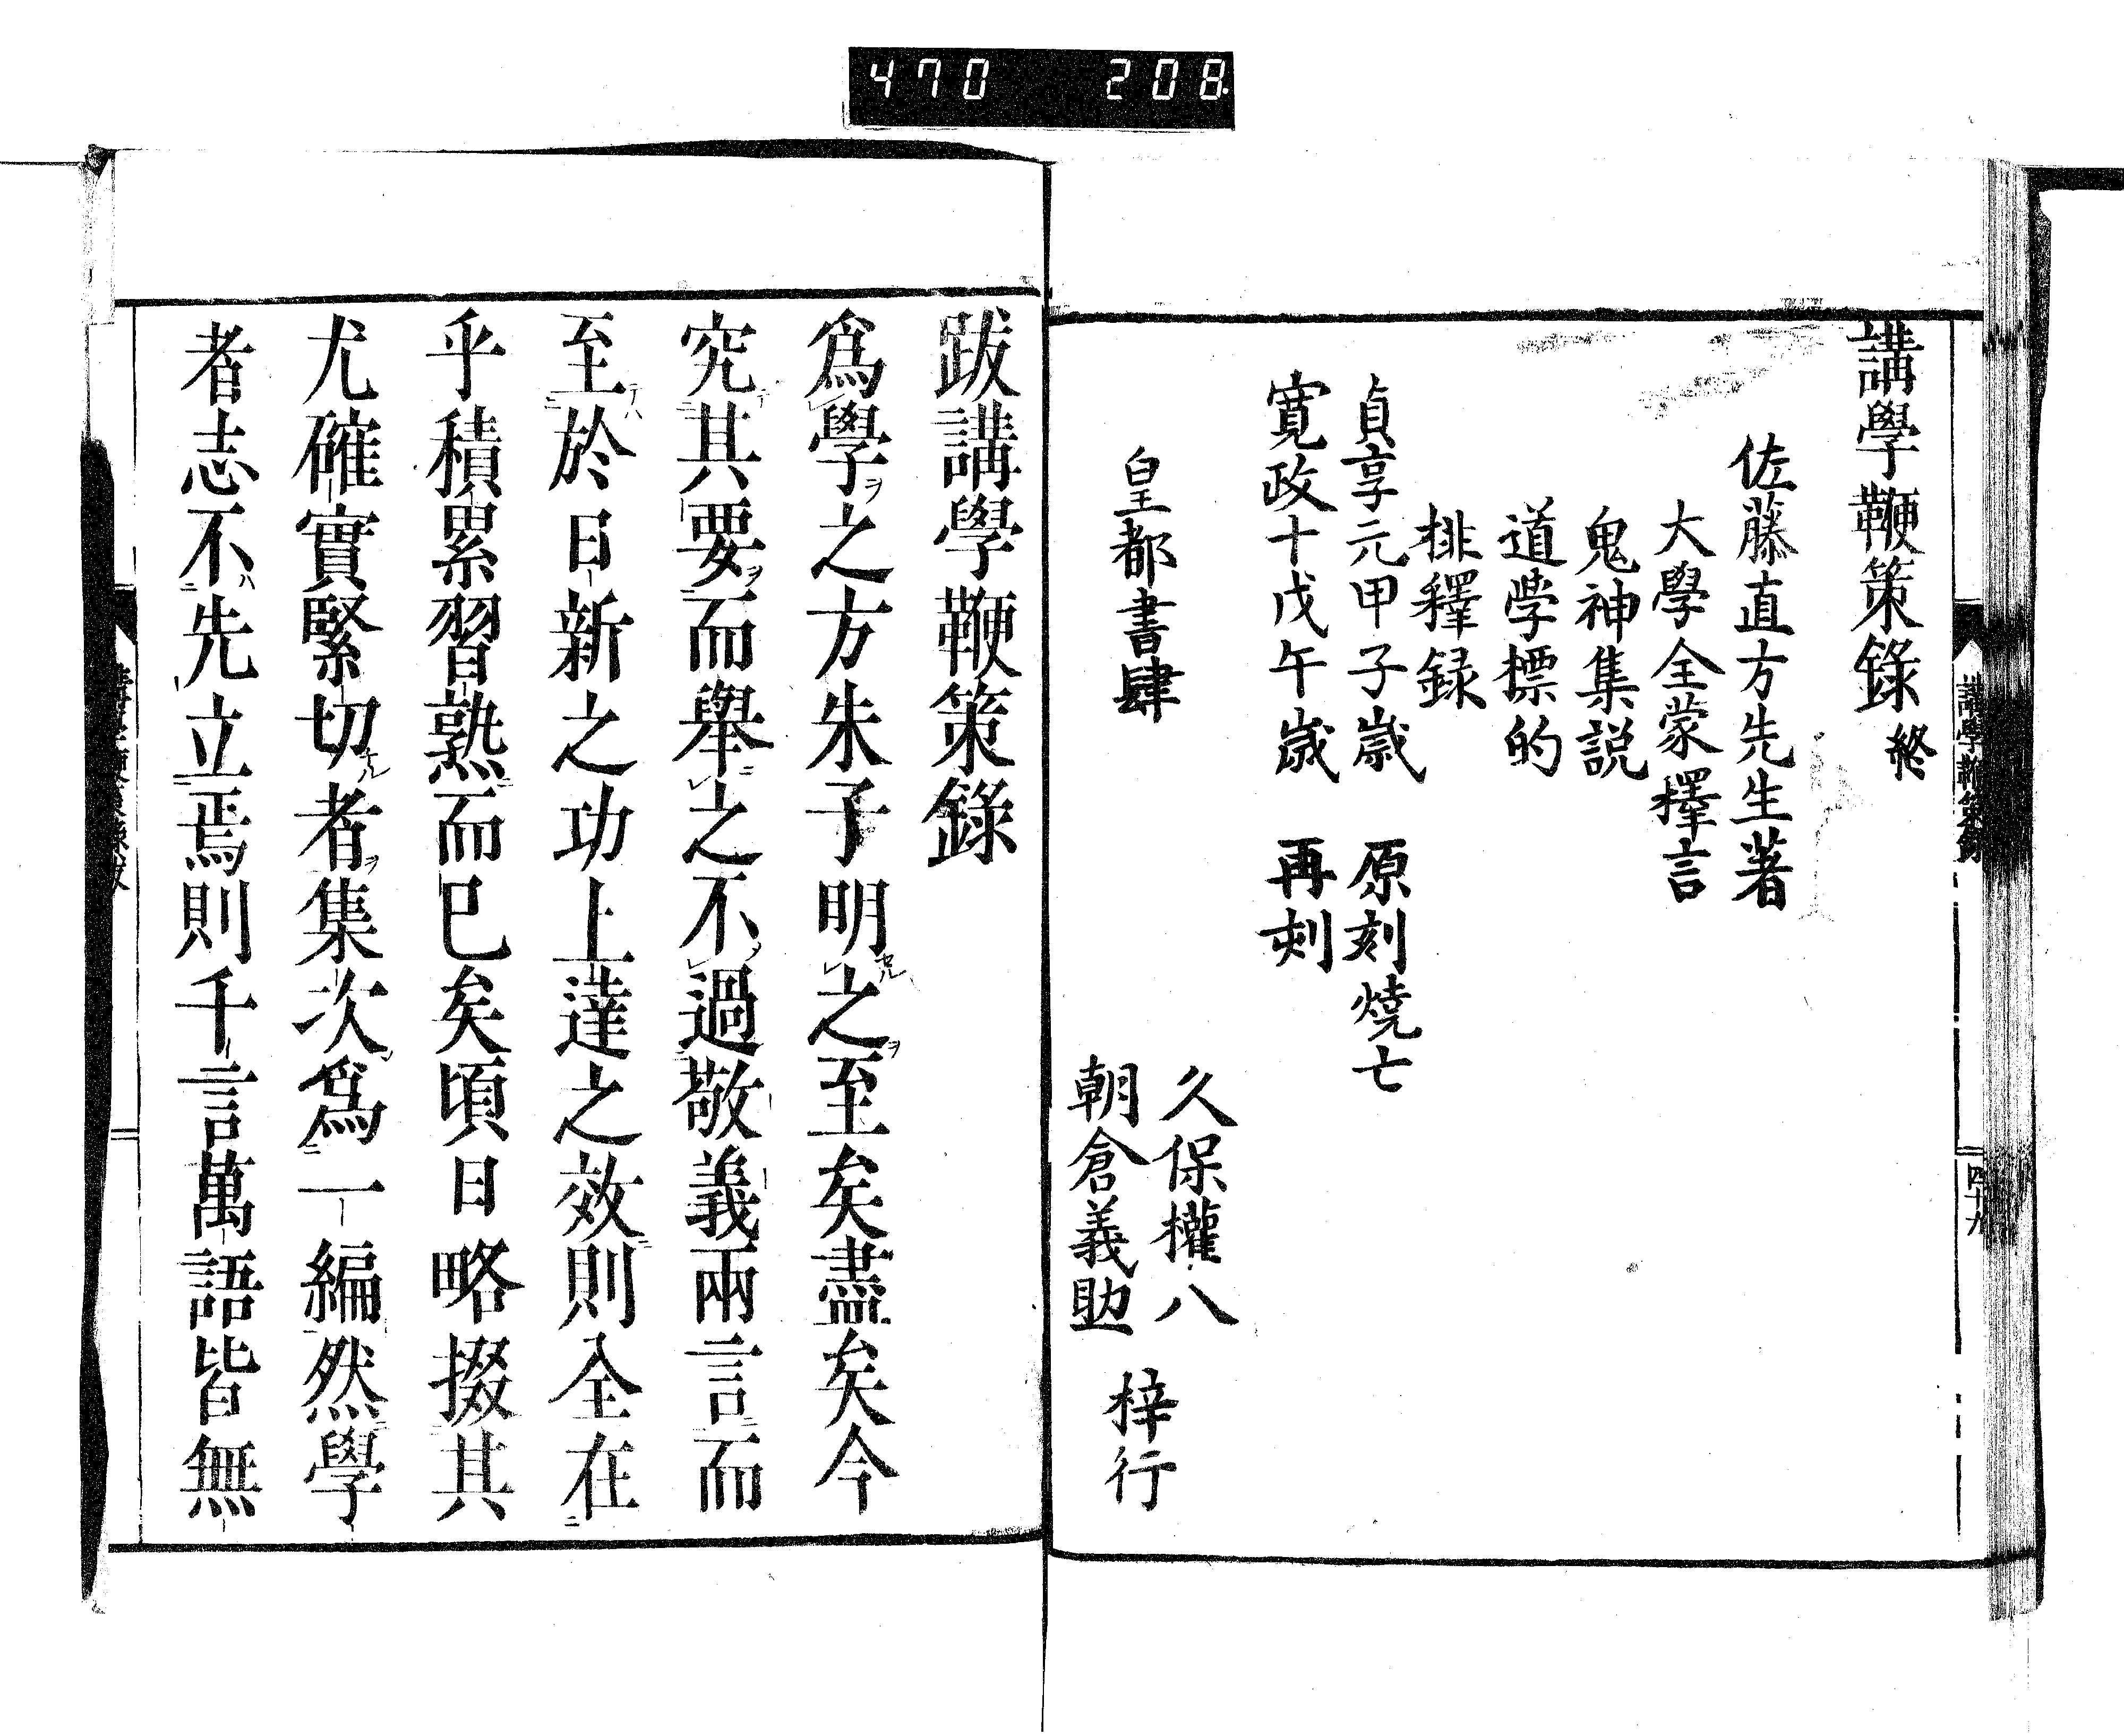 470 208
講學鞭策錄終
佐藤直方先生著
大學全蒙擇言
鬼神集説
道学標的
排釋録
貞享元甲子歳 原刻燒亡
寛政十戊午歳 再刻
皇都書肆
久保權八
朝倉義助
梓行
講學鞭策錄
四十九
跋講學鞭策錄
爲學ヲ之方朱子明セル之ヲ至矣盡矣今
究テ其要ヲ而舉之不過敬義兩言而
至テハ於日新之功上達之效則全在
乎積累習熟而已矣頃日略掇其
尤確實緊切ナル者ヲ集次爲一編然學
者志不ハ先立焉則千言萬語皆無